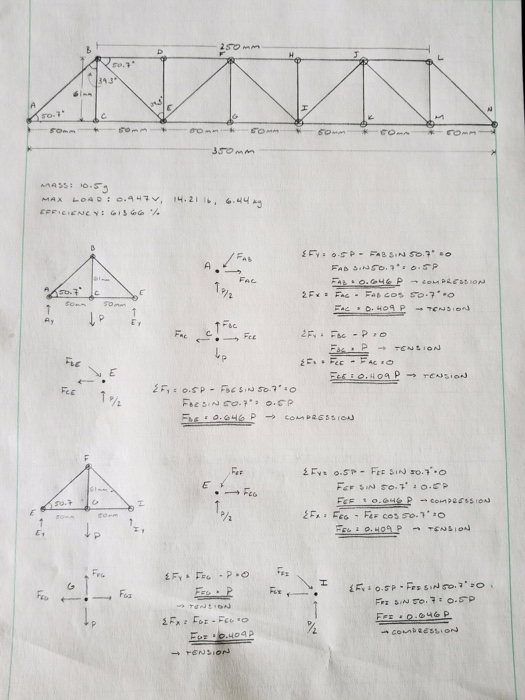 250mm
B D F H J L
50.7°
39.3°
61mm
A 50.7° C E G I K M N
50mm 50mm 50mm 50mm 50mm 50mm 50mm
350mm
MASS: 10.5g
MAX LOAD: 0.947V, 14.21 lb, 6.44 kg
EFFICIENCY:
B
61mm
A 50.7° C E
50mm 50mm
Ay P Ey
A FAB
FAC
P/2
ΣFy: 0.5P - FAB SIN 50.7° = 0
FAB SIN 50.7° = 0.5P
FAB = 0.646 P → COMPRESSION
ΣFx = FAC - FAB COS 50.7° = 0
FAC = 0.409 P → TENSION
FBC
FAC C FCE
P
ΣFy: FBC - P = 0
FBC = P → TENSION
ΣFx = FCE - FAC = 0
FCE = 0.409 P → TENSION
FBE
E
FCE
P/2
ΣFy: 0.5P - FBE SIN 50.7° = 0
FBE SIN 50.7° = 0.5P
FBE = 0.646 P → COMPRESSION
F
61mm
E 50.7 G I
50mm 50mm
Ey P Iy
FEF
E FEG
P/2
ΣFy = 0.5P - FEF SIN 50.7° = 0
FEF SIN 50.7° = 0.5P
FEF = 0.646 P → COMPRESSION
ΣFx = FEG - FEF COS 50.7° = 0
FEG = 0.409 P → TENSION
FFG
G
FEG FGI
P
ΣFy = FFG - P = 0
FFG = P
→ TENSION
ΣFx = FGI - FEG = 0
FGI = 0.409P
→ TENSION
FFI
I
P/2
ΣFy: 0.5P - FFI SIN 50.7° = 0
FFI SIN 50.7 = 0.5P
FFI = 0.646P
→ COMPRESSION